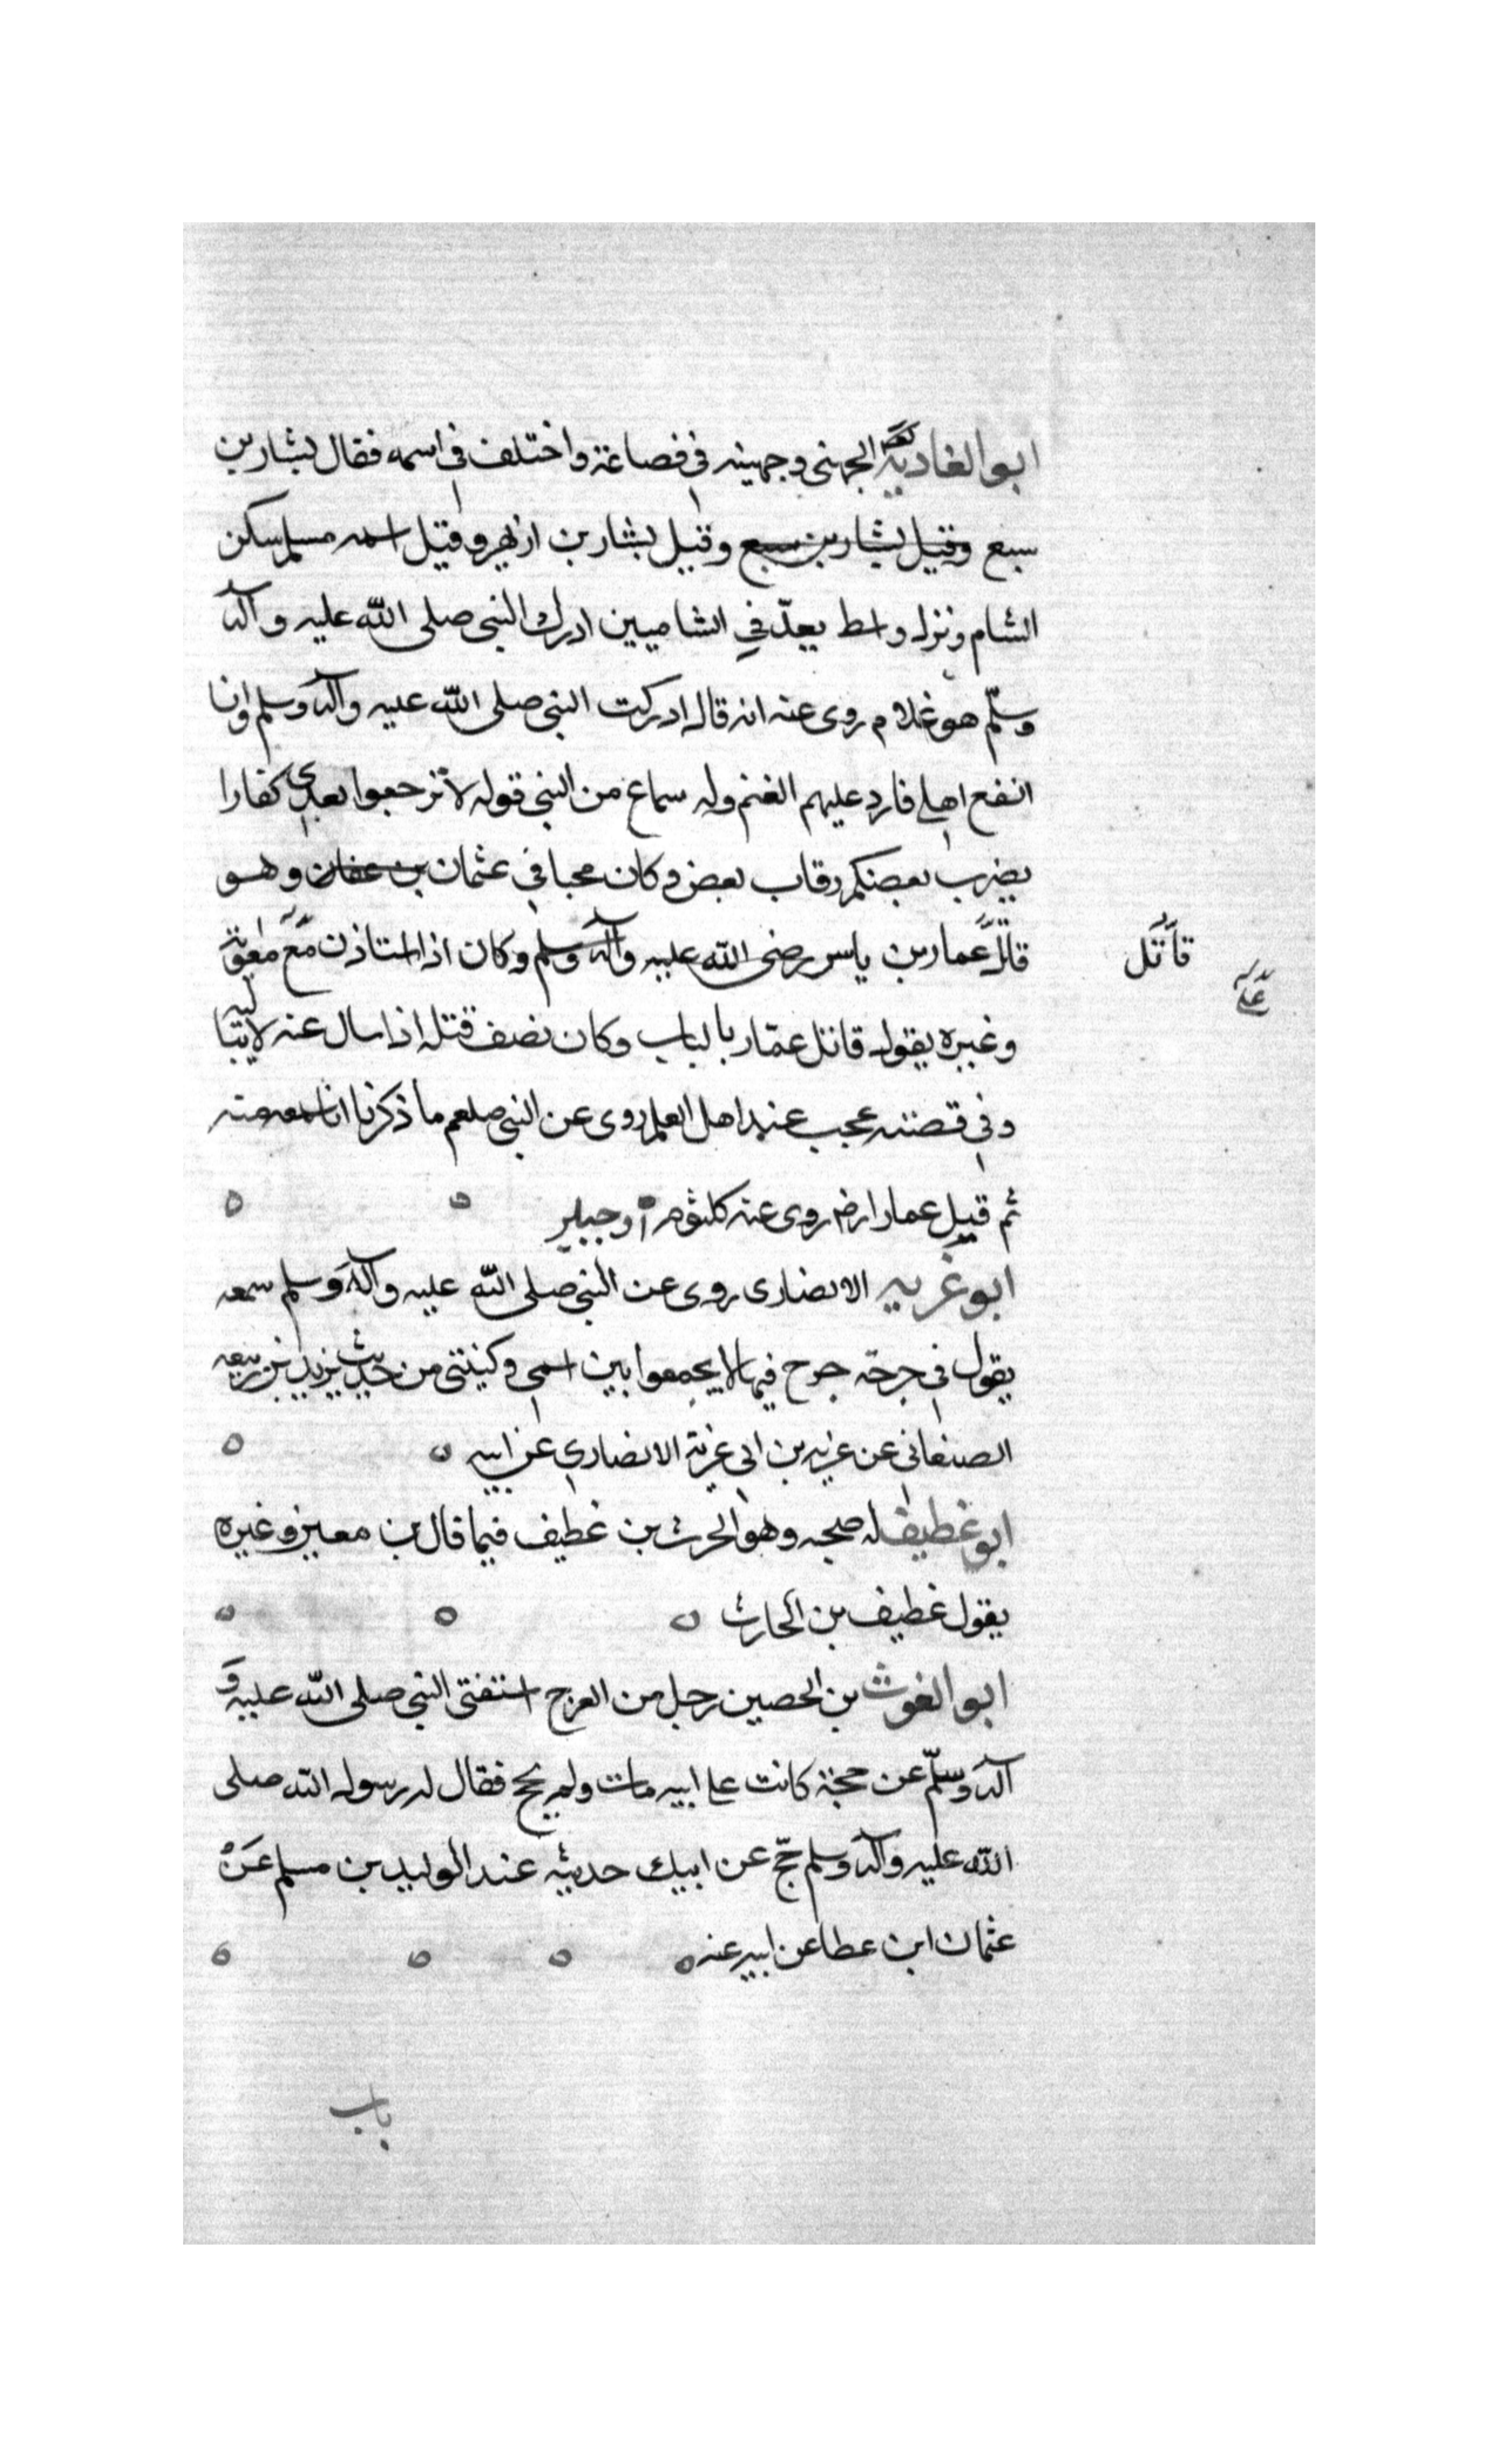 ابو الغادية الجهني وجهينه في قضاعة واختلف في اسمه فقال بشار بن
سبع وقيل بشار بن سبع وقيل بشار بن ازيهر وقيل اسمه مسلم سكن
الشام ونزل واسط يعدّ في الشاميين ادرك النبي صلى الله عليه وآله
وسلّم هو غلام روى عنه انه قال ادركت النبي صلى الله عليه وآله وسلم وانا
انفع اهلي فارد عليهم الغنم وله سماع من النبي قوله لا ترجعوا بعدي كفارا
يضرب بعضكم رقاب بعض وكان محبا في عثمان بن عفان وهو
قاتل عمار بن ياسر رضى الله عليه وآله وسلم وكان اذا استاذن مع معوية
قاتل
على
وغيره يقول قاتل عمّار بالباب وكان نصف قتله اذا سال عنه لا يتباليه
وفي قصته عجب عند اهل العلم روى عن النبي صلعم ما ذكرنا انا سمعه منه
ثم قيل عمارا رض روى عنه كلثوم او جبلر
ابو غريه الانصارى روى عن النبي صلى الله عليه وآله وسلم سمعه
يقول في جرحة جرح فيها لا يجمعوا بين اسمي وكنيتي من حديث يزيد بن ربيعه
الصنعاني عن غزيه بن ابي غزية الانصاري عن ابيه
ابو غطيف له صحبه وهو الحرث بن غطيف فيما قال بن معين وغيره
يقول غطيف بن الحارث
ابو الغوث بن الحصين رجل من العرج استفتى النبي صلى الله عليه و
آله وسلّم عن حجة كانت على ابيه مات ولم يحج فقال له رسول الله صلى
الله عليه وآله وسلم حجّ عن ابيك حديثه عند الوليد بن مسلم عن
عثمان ابن عطا عن ابيه عنه
باب